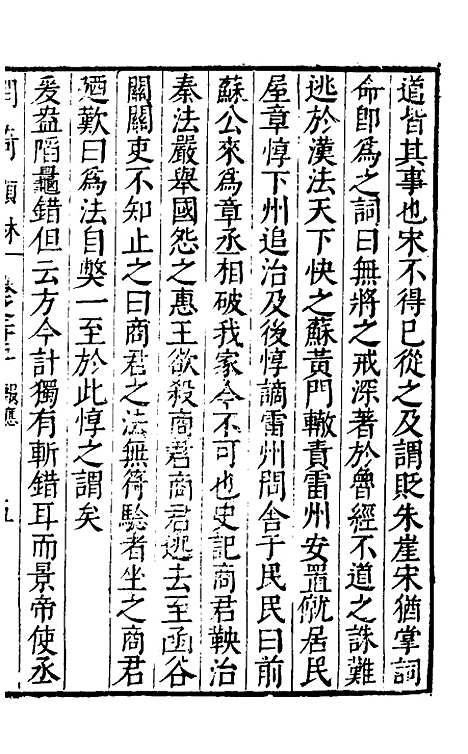 道皆其事也宋不得已從之及謂貶朱崖宋猶掌詞
命卽爲之詞曰無將之戒深著於魯經不道之誅難
逃於漢法天下快之蘇黃門轍責雷州安置僦居民
屋章惇下州追治及後惇謫雷州問舍于民民曰前
蘇公來爲章丞相破我家今不可也史記商君鞅治
秦法嚴舉國怨之惠王欲殺商君商君逃去至函谷
關關吏不知止之曰商君之法無符驗者坐之商君
廼歎曰爲法自獘一至於此惇之謂矣
爰盎陷鼂錯但云方今計獨有斬錯耳而景帝使丞
類林 卷之 五 報應 五